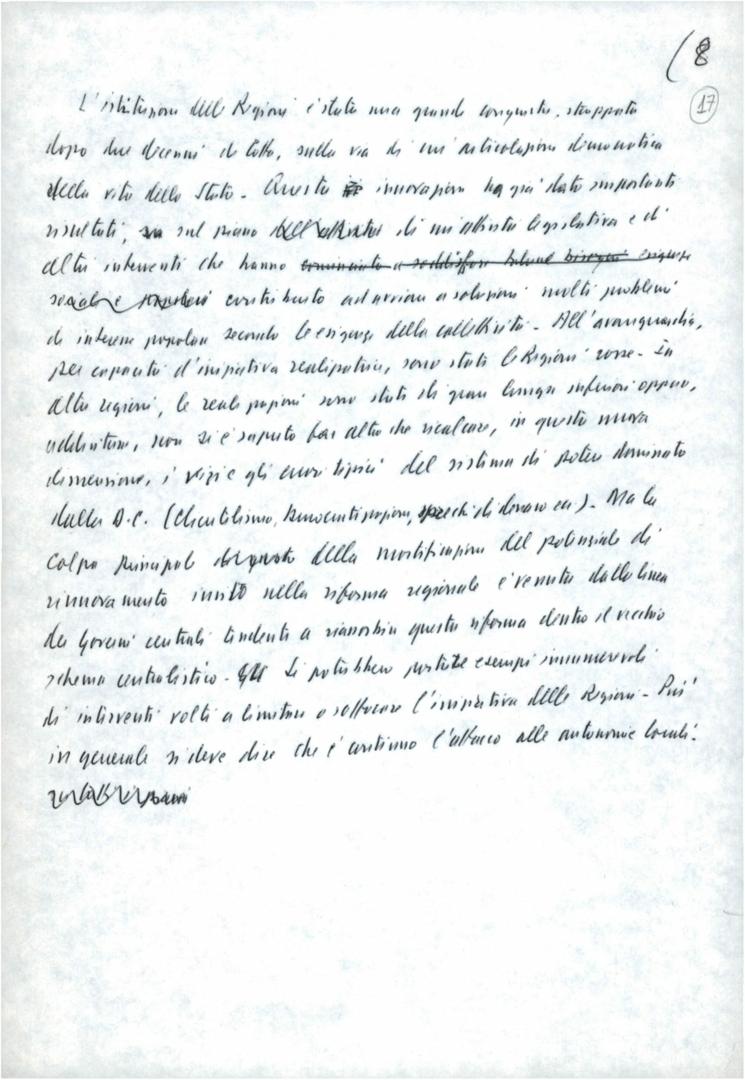 (8
17
L'istituzione delle Regioni è stata una grande conquista, strappata
dopo due decenni di lotta, sulla via di un'articolazione democratica
della vita dello Stato. Questa innovazione ha già dato importanti
risultati, sul piano dell'attività di un'attività legislativa e di
altri interventi che hanno cominciato a soddisfare talune bisogni esigenze
sociali e popolari contribuito ad avviare a soluzioni molti problemi
di interesse popolare secondo le esigenze della collettività. All'avanguardia,
per capacità d'iniziativa realizzatrice, sono stati le Regioni rosse. In
altre regioni, le realizzazioni sono state di gran lunga inferiori oppure,
addirittura, non si è saputo far altro che ricalcare, in questa nuova
dimensione, i vizi e gli errori tipici del sistema di potere dominato
dalla D.C. (Clientelismo, burocratizzazione, sprechi di denaro ecc). Ma la
colpa principale della mortificazione del potenziale di
rinnovamento insito nella riforma regionale è venuta dalla linea
dei Governi centrali tendenti a riassorbire questa riforma dentro il vecchio
schema centralistico. Si potrebbero portare esempi innumerevoli
di interventi volti a limitare o soffocare l'iniziativa delle Regioni. Più
in generale si deve dire che è continuo l'attacco alle autonomie locali.